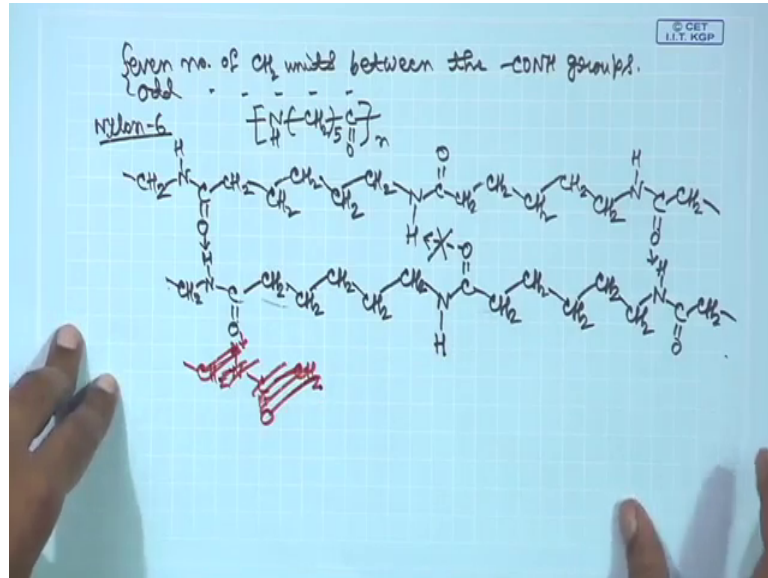 © CET
I.I.T. KGP
{even no. of CH2 units between the -CONH groups.
{odd " " " " "
Nylon-6 [N(CH2)5C]n
H O
H O H
-CH2 N C CH2 CH2 CH2 CH2 CH2 N C CH2 CH2 CH2 CH2 CH2 N C CH2-
O H O
H O H
-CH2 N C CH2 CH2 CH2 CH2 CH2 N C CH2 CH2 CH2 CH2 CH2 N C CH2-
O H O